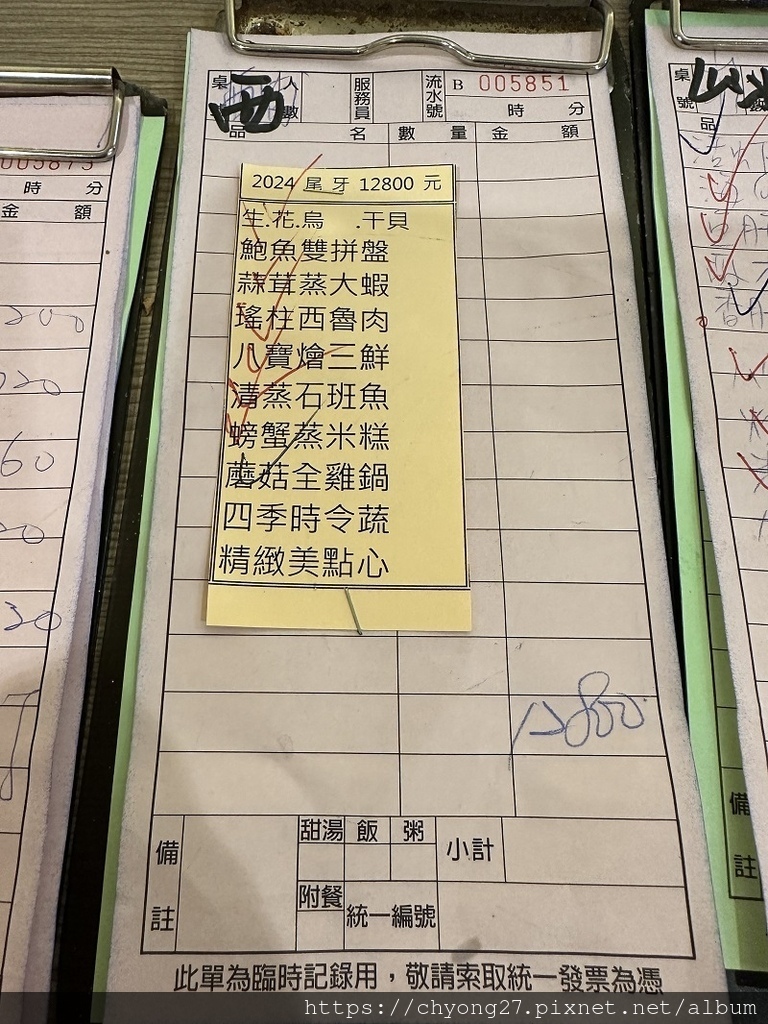 005873
時 分
金 額
200
020
60
20
30
桌 人 服務員 流水號 B 005851
西
號 數 時 分
品 名 數 量 金 額
2024 尾 牙 12800 元
生.花.烏 .干貝
鮑魚雙拼盤
蒜茸蒸大蝦
瑤柱西魯肉
八寶燴三鮮
清蒸石班魚
螃蟹蒸米糕
蘑菇全雞鍋
四季時令蔬
精緻美點心
12800
備註
甜湯 飯 粥 小計
附餐 統一編號
此單為臨時記錄用，敬請索取統一發票為憑
桌
號
品
備
註
https://chyong27.pixnet.net/album